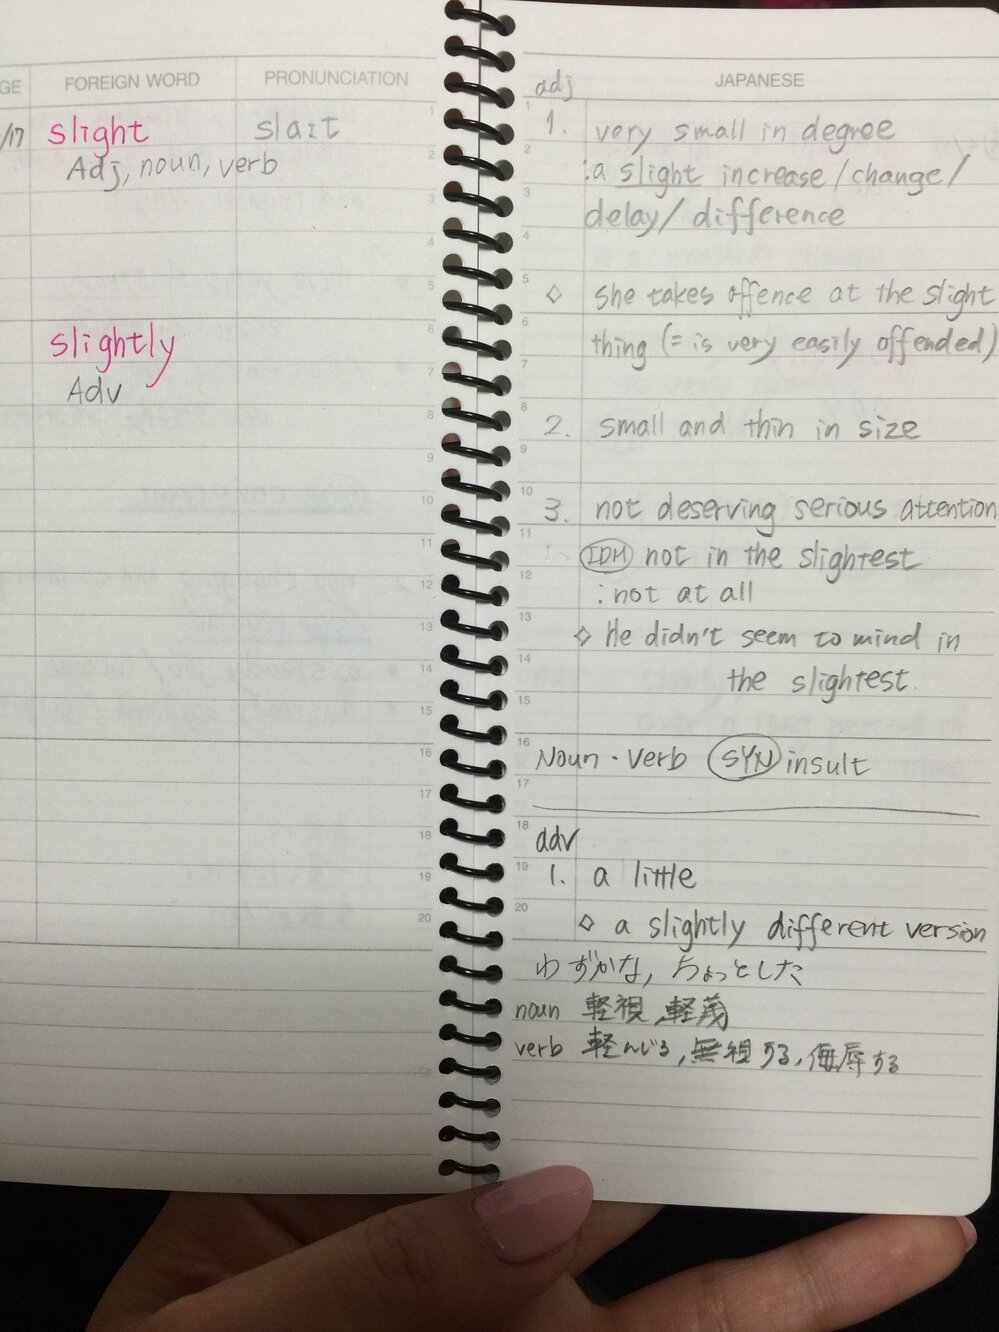 GE FOREIGN WORD PRONUNCIATION
/17 slight slaɪt
Adj, noun, verb
slightly
Adv
1
2
3
4
5
6
7
8
9
10
11
12
13
14
15
16
17
18
19
20
adj JAPANESE
1 1. very small in degree
2 : a slight increase / change /
3 delay / difference
4
5 ◇ she takes offence at the slight
6 thing (= is very easily offended)
7
8 2. small and thin in size
9
10 3. not deserving serious attention
11 IDM not in the slightest
12 : not at all
13 ◇ He didn't seem to mind in
14 the slightest.
15
16 Noun · verb SYN insult
17
18 adv
19 1. a little
20 ◇ a slightly different version
わずかな, ちょっとした
noun 軽視, 軽蔑
verb 軽んじる, 無視する, 侮辱する